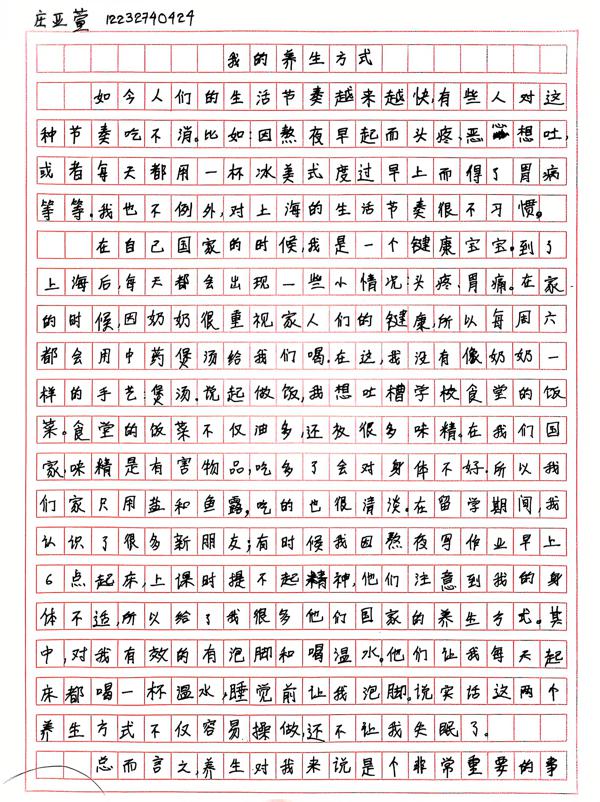 庄亚萱 12232740424
我的养生方式
如今人们的生活节奏越来越快,有些人对这
种节奏吃不消。比如:因熬夜早起而头疼、恶想吐,
或者每天都用一杯冰美式度过早上而得了胃病
等等。我也不例外,对上海的生活节奏很不习惯。
在自己国家的时候,我是一个健康宝宝。到了
上海后,每天都会出现一些小情况:头疼、胃痛。在家
的时候,因奶奶很重视家人们的健康,所以每周六
都会用中药煲汤给我们喝。在这,我没有像奶奶一
样的手艺:煲汤。说起做饭,我想吐槽学校食堂的饭
菜。食堂的饭菜不仅油多,还放很多味精。在我们国
家,味精是有害物品,吃多了会对身体不好。所以我
们家只用盐和鱼露,吃的也很清淡。在留学期间,我
认识了很多新朋友;有时候我因熬夜写作业早上
6点起床,上课时提不起精神,他们注意到我的身
体不适,所以给了我很多他们国家的养生方式。其
中,对我有效的有泡脚和喝温水。他们让我每天起
床都喝一杯温水,睡觉前让我泡脚。说实话这两个
养生方式不仅容易操做,还不让我失眠了。
总而言之,养生对我来说是个非常重要的事